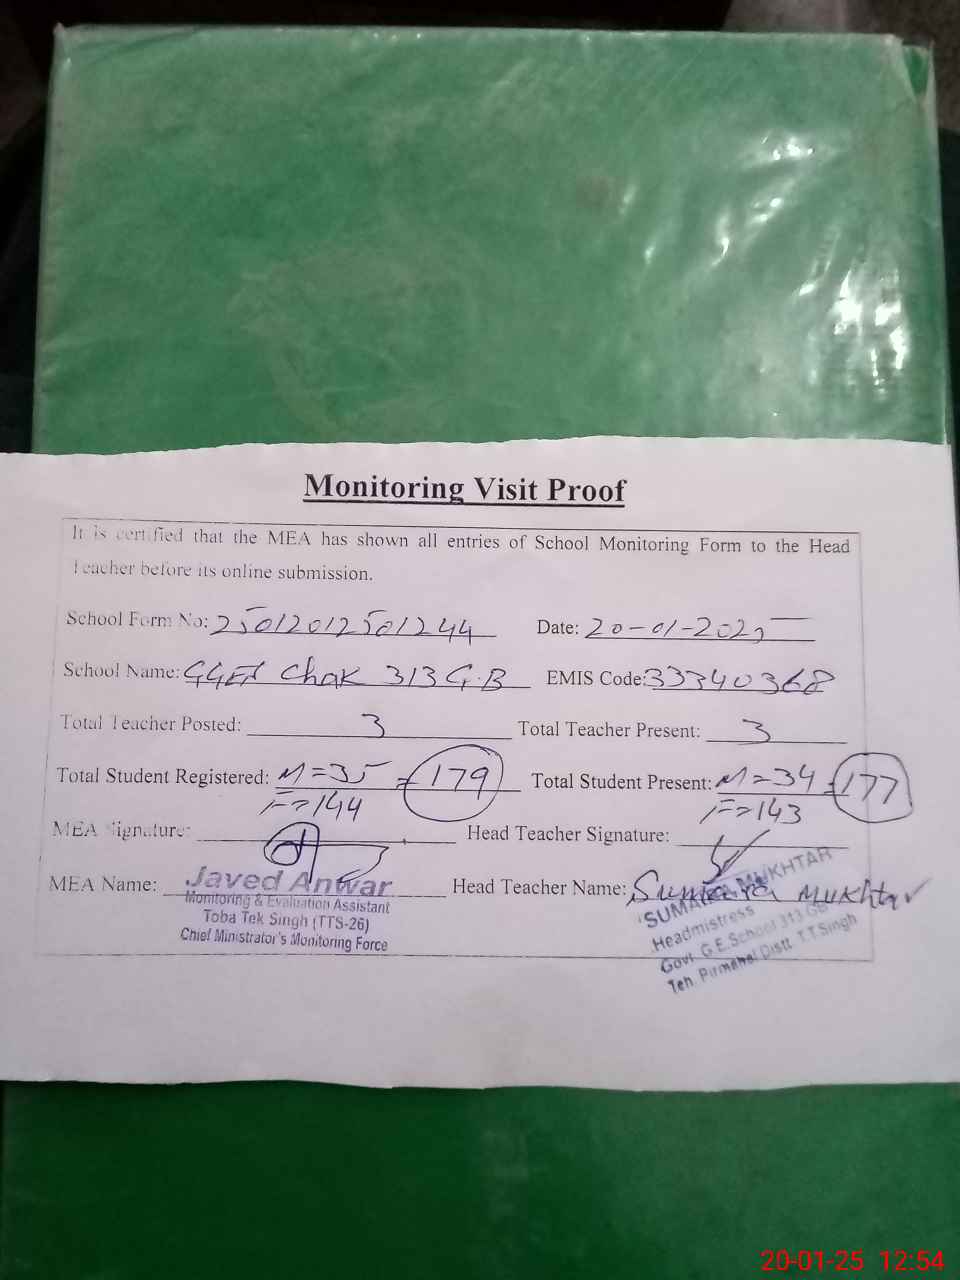 Monitoring Visit Proof
It is certified that the MEA has shown all entries of School Monitoring Form to the Head
Teacher before its online submission.
School Form No: 25012012501244 Date: 20-01-2025
School Name: GGES Chak 313 G.B EMIS Code: 33340368
Total Teacher Posted: 3 Total Teacher Present: 3
Total Student Registered: M=35 = 179 Total Student Present: M=34 = 177
F=144 F=143
MEA Signature: Head Teacher Signature:
MEA Name: Javed Anwar Head Teacher Name: Sumaira Mukhtar
Monitoring & Evaluation Assistant
Toba Tek Singh (TTS-26)
Chief Ministrator's Monitoring Force
SUMAIRA MUKHTAR
Headmistress
Govt. G.E.School 313 GB
Teh. Pirmahal Distt. T.T.Singh
20-01-25 12:54